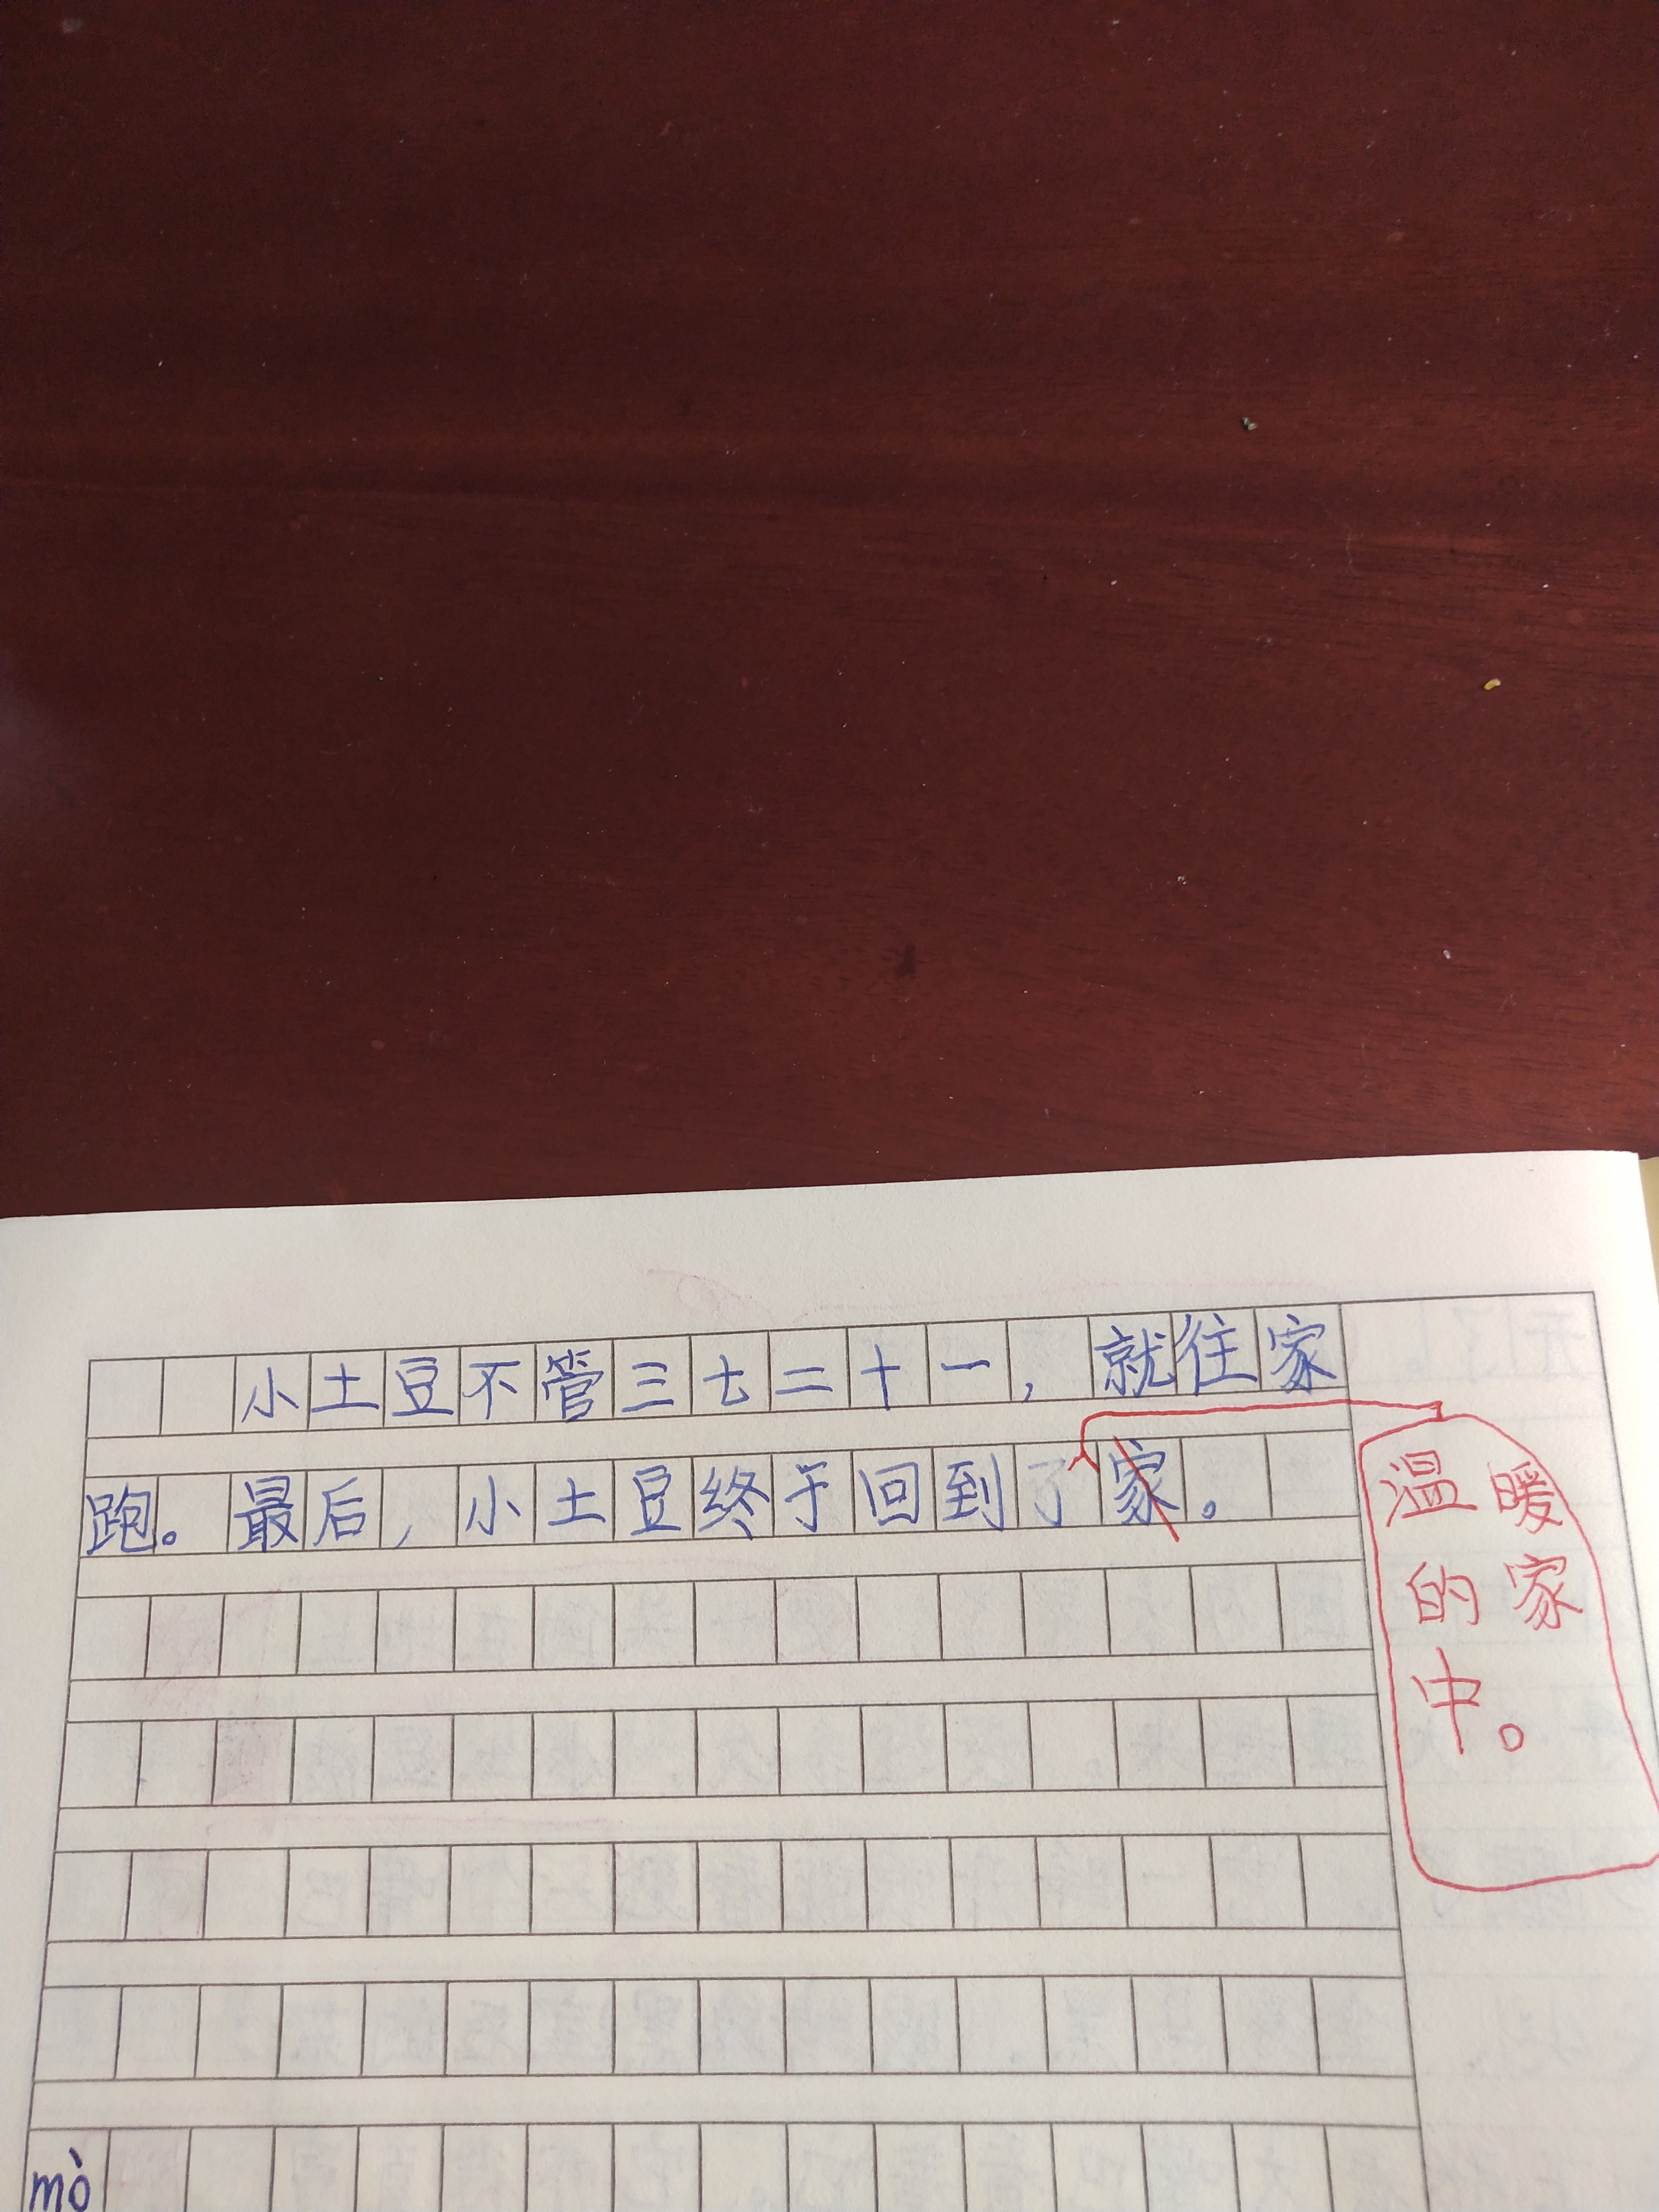 小土豆不管三七二十一，就住家
跑。最后，小土豆终于回到了家。
温暖
的家
中。
mò